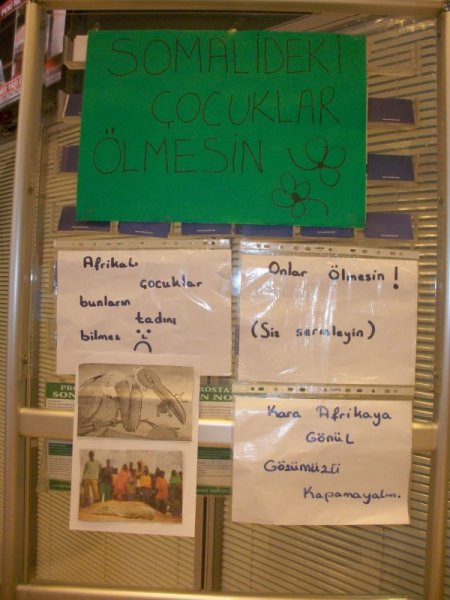 SOMALİDEKİ
ÇOCUKLAR
ÖLMESİN
Afrikalı
çocuklar
bunların
tadını
bilmez
Onlar Ölmesin !
(Siz serinleyin)
Kara Afrikaya
GÖNÜL
Gözümüzü
Kapamayalım.